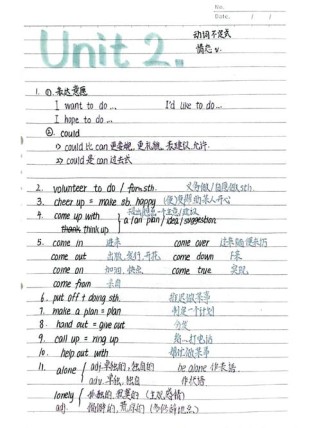 No.
Date. / /
动词不定式
情态 v.
Unit 2.
1. ①. 表达意愿
I want to do ... I'd like to do ...
I hope to do ...
②. could
1) could 比 can 更委婉, 更礼貌, 表建议, 允许.
2) could 是 can 过去式
2. volunteer to do / for sth. 义务做 / 自愿做 sth.
3. cheer up = make sb. happy (使)变得高兴 某人开心
4. come up with } a / an plan / idea / suggestion.
think up
5. come in 进来 come over
come out 出版, 发行, 开花 come down 下来
come on 加油, 快点 come true 实现
come from 来自
6. put off + doing sth. 推迟做某事
7. make a plan = plan 制定一个计划
8. hand out = give out 分发
9. call up = ring up 给...打电话
10. help out with 帮忙做某事
11. alone { adj. 单独的, 独自的 be alone 作表语.
adv. 单独, 独自 作状语
lonely { 孤独的, 寂寞的 (主观, 感情)
adj. 偏僻的, 荒凉的 (多修饰地点)